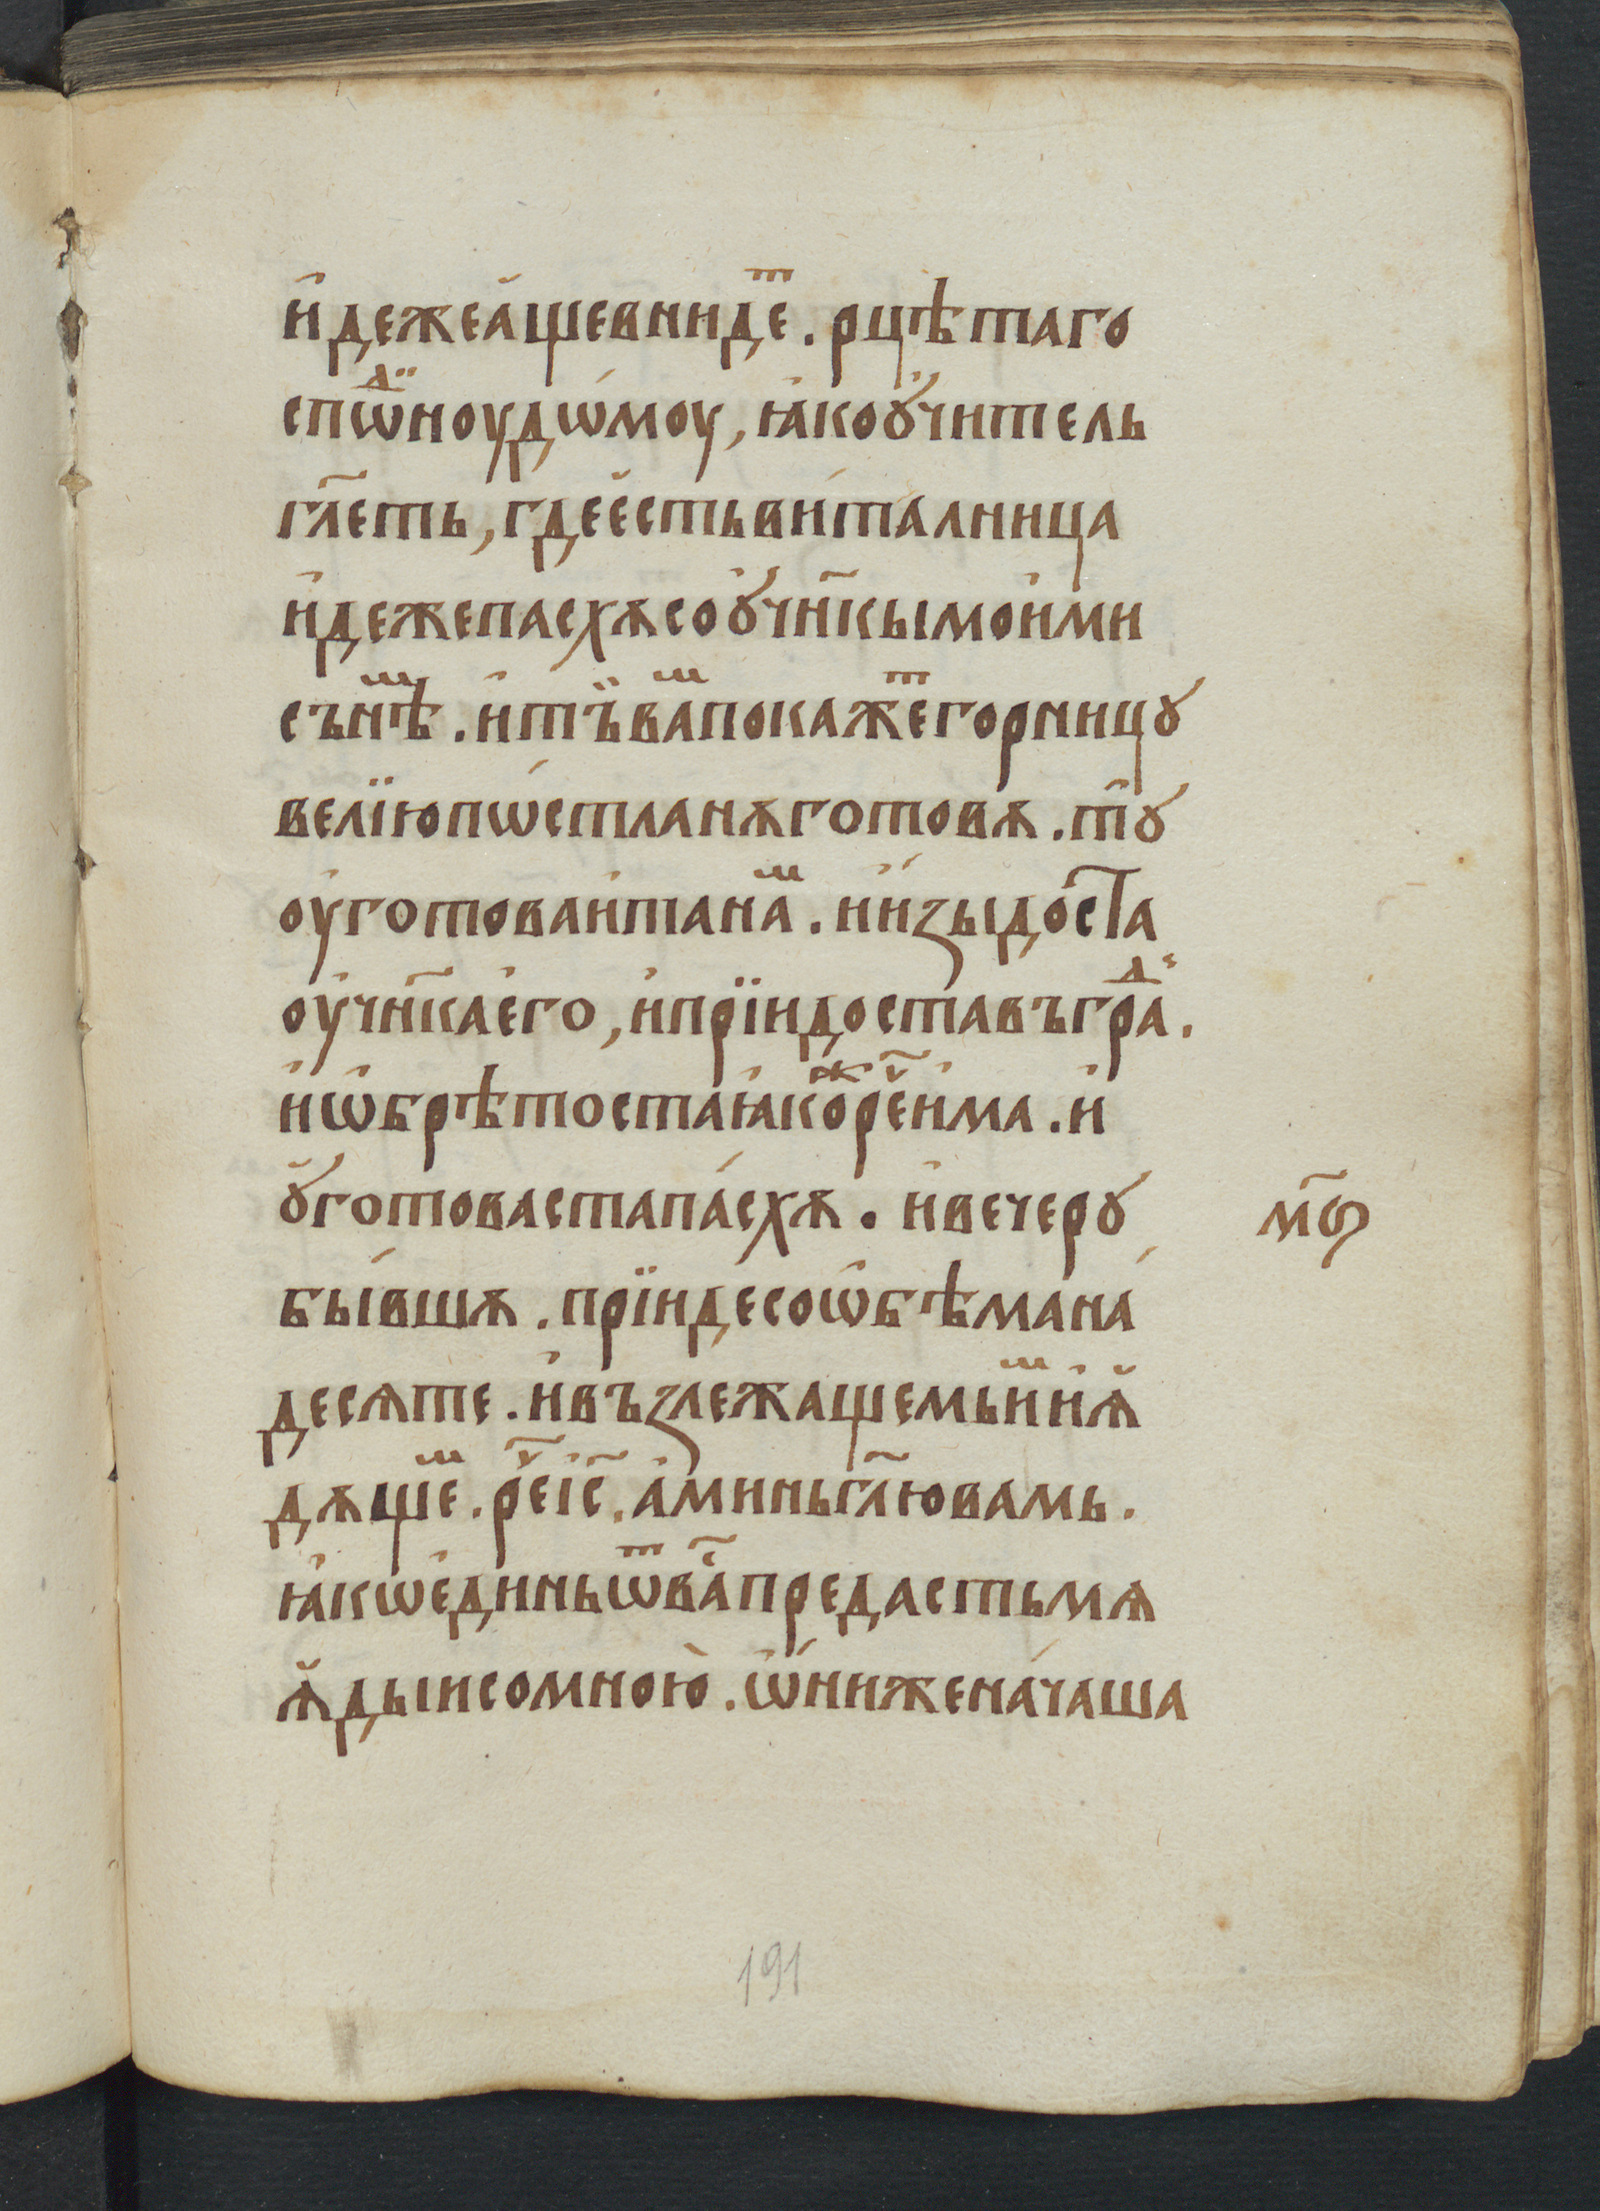 и҆дежеа҆щевнидеⷮ҇ . рцѣтаго
спⷣѡ҇ноудѡ́моу, ꙗ҆коꙋ҆чи́тель
гл҃еть, гдее҆стьви́та́лница
и҆дежепасхѫсоꙋ҆чн҃кымои҆ми
съⷨнѣ . и҆тъ̈ваⷨпокажеⷮ҇горницꙋ
велїюпѡ́стланѫготовѫ . тꙋ̑
оу҆готоваи҆танаⷨ . ии҆́зыдо́ста
оу҆чн҃кае҆го, и҆прїидоставъграⷣ .
и҆ѡ҆брѣтостаꙗ҆коⷤреⷱ҇и҆ма . и҆
ꙋ҆готовастапа́схѫ . и҆вечерꙋ̀
бы́вшѫ . прїиде́соѡ҆бѣмана́
десѧте . и҆възлежащемьⷨи҆ꙗ҆
дѫщеⷨ . реⷱ҇і҆с҃ . а҆миньгл҃ювамь .
ꙗ҆кѡе҆диньѿваⷭ҇предастьмѧ
ꙗ҆дыисомною̀ . ѡ҆ни́женачаша
мѳ҃
191